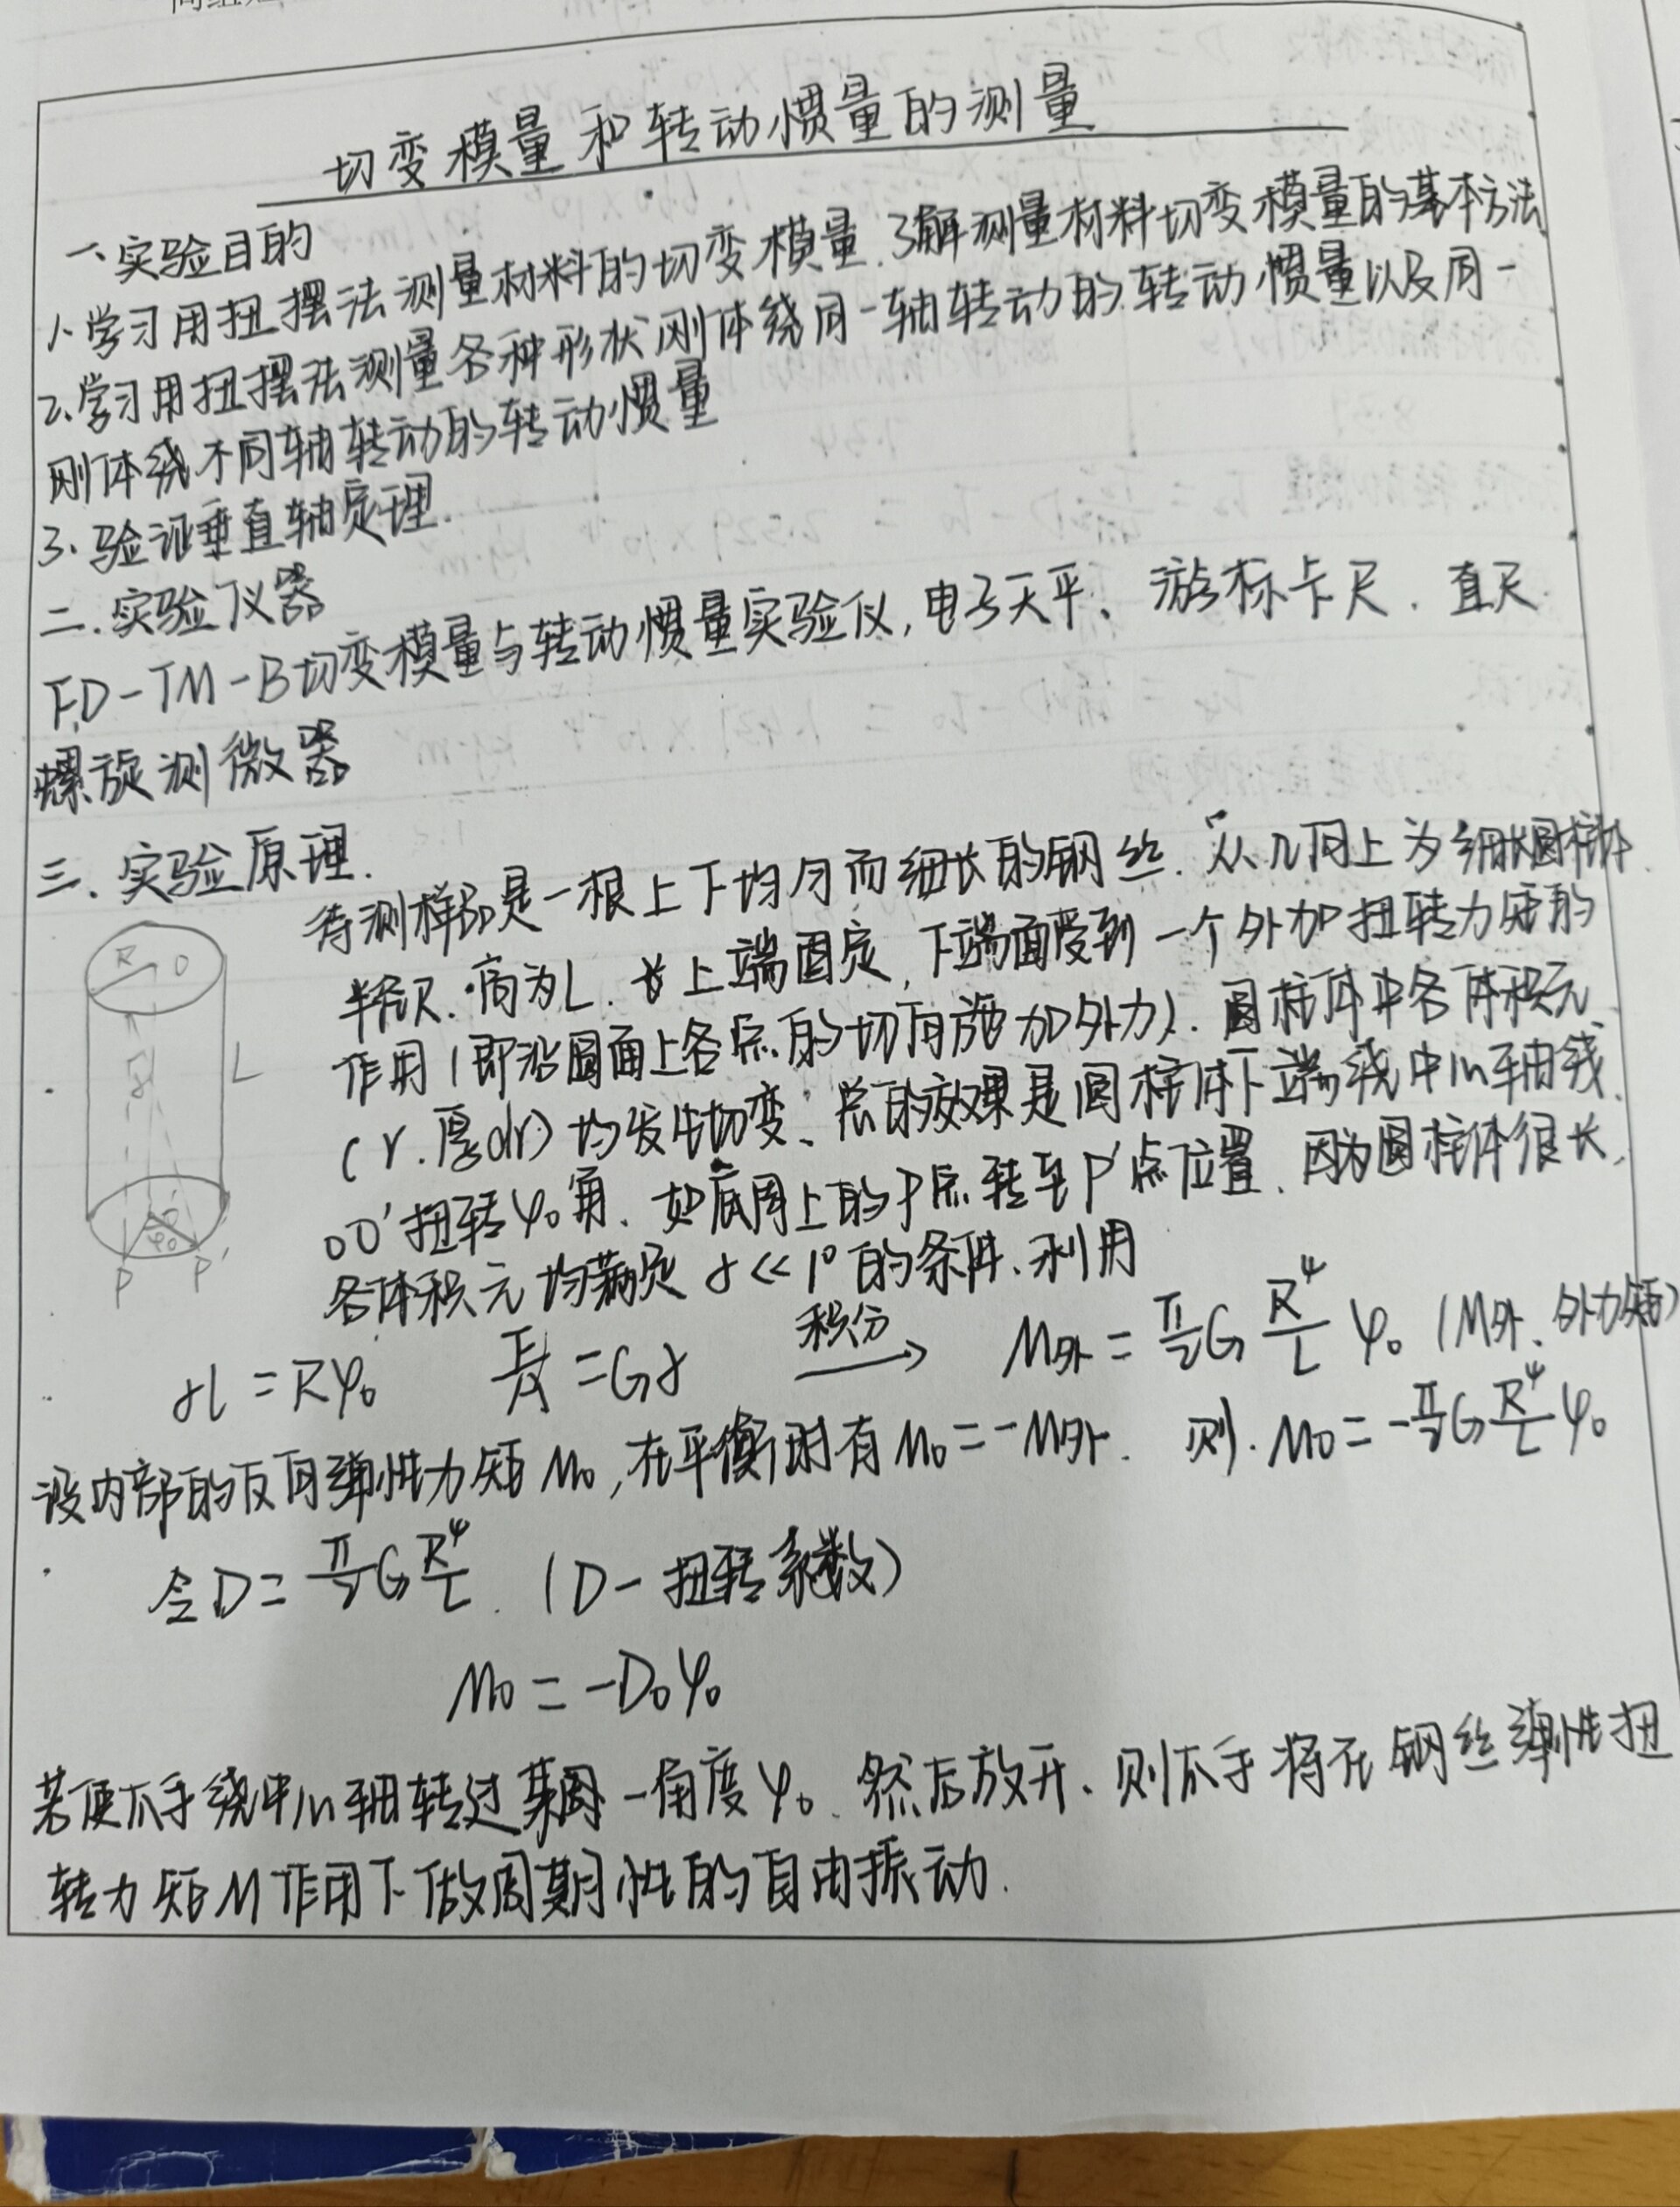 切变模量和转动惯量的测量
一、实验目的
1、学习用扭摆法测量材料的切变模量.了解测量材料切变模量的基本方法
2.学习用扭摆法测量各种形状刚体绕同一轴转动的转动惯量以及同一
刚体绕不同轴转动的转动惯量
3.验证垂直轴定理.
二.实验仪器
FD-TM-B切变模量与转动惯量实验仪,电子天平、游标卡尺.直尺
螺旋测微器
三.实验原理.
待测样品是一根上下均匀而细长的钢丝.从几何上为细长圆柱体.
半径R.高为L.上端固定,下端面受到一个外加扭转力矩的
作用(即沿圆面上各点的切向施加外力).圆柱体中各体积元
(r.厚dr)均发生切变、总的效果是圆柱体下端绕中心轴线
OO'扭转φ₀角、如底周上的P点转至P'点位置、因为圆柱体很长,
各体积元均满足γ<<1°的条件.利用
R O
L
φ₀
P P'
γL=Rφ₀ F/A=Gγ 积分→ M外=π/2 G R⁴/L φ₀ (M外、外力矩)
设内部的反向弹性力矩M₀,在平衡时有M₀=-M外. 则.M₀=-π/2 G R⁴/L φ₀
令D=π/2 G R⁴/L.(D-扭转系数)
M₀=-D₀φ₀
若使爪手绕中心轴转过某一角度φ₀.然后放开、则爪手将在钢丝弹性扭
转力矩M作用下做周期性的自由振动.